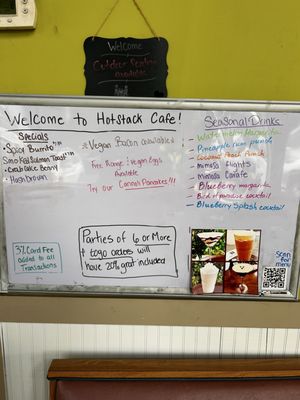 Welcome
Outdoor Seating
available
Welcome to Hotstack Cafe!
Specials
Spicy Burrito
Smoked Salmon Toast
Crab Cake Benny
Hash Brown
3% Card Fee
added to all
Transactions
Vegan Bacon available
Free Range & Vegan Eggs
Available
Try our Cannoli Pancakes!!!
Parties of 6 or More
& togo orders will
have 20% grat included
Seasonal Drinks
- Watermelon Margarita
- Pineapple rum punch
- Coconut Peach Punch
- Mimosa Flights
- Mimosa Carafe
- Blueberry margarita
- Bird of paradise cocktail
- Blueberry Splash cocktail
Scan
For
menu